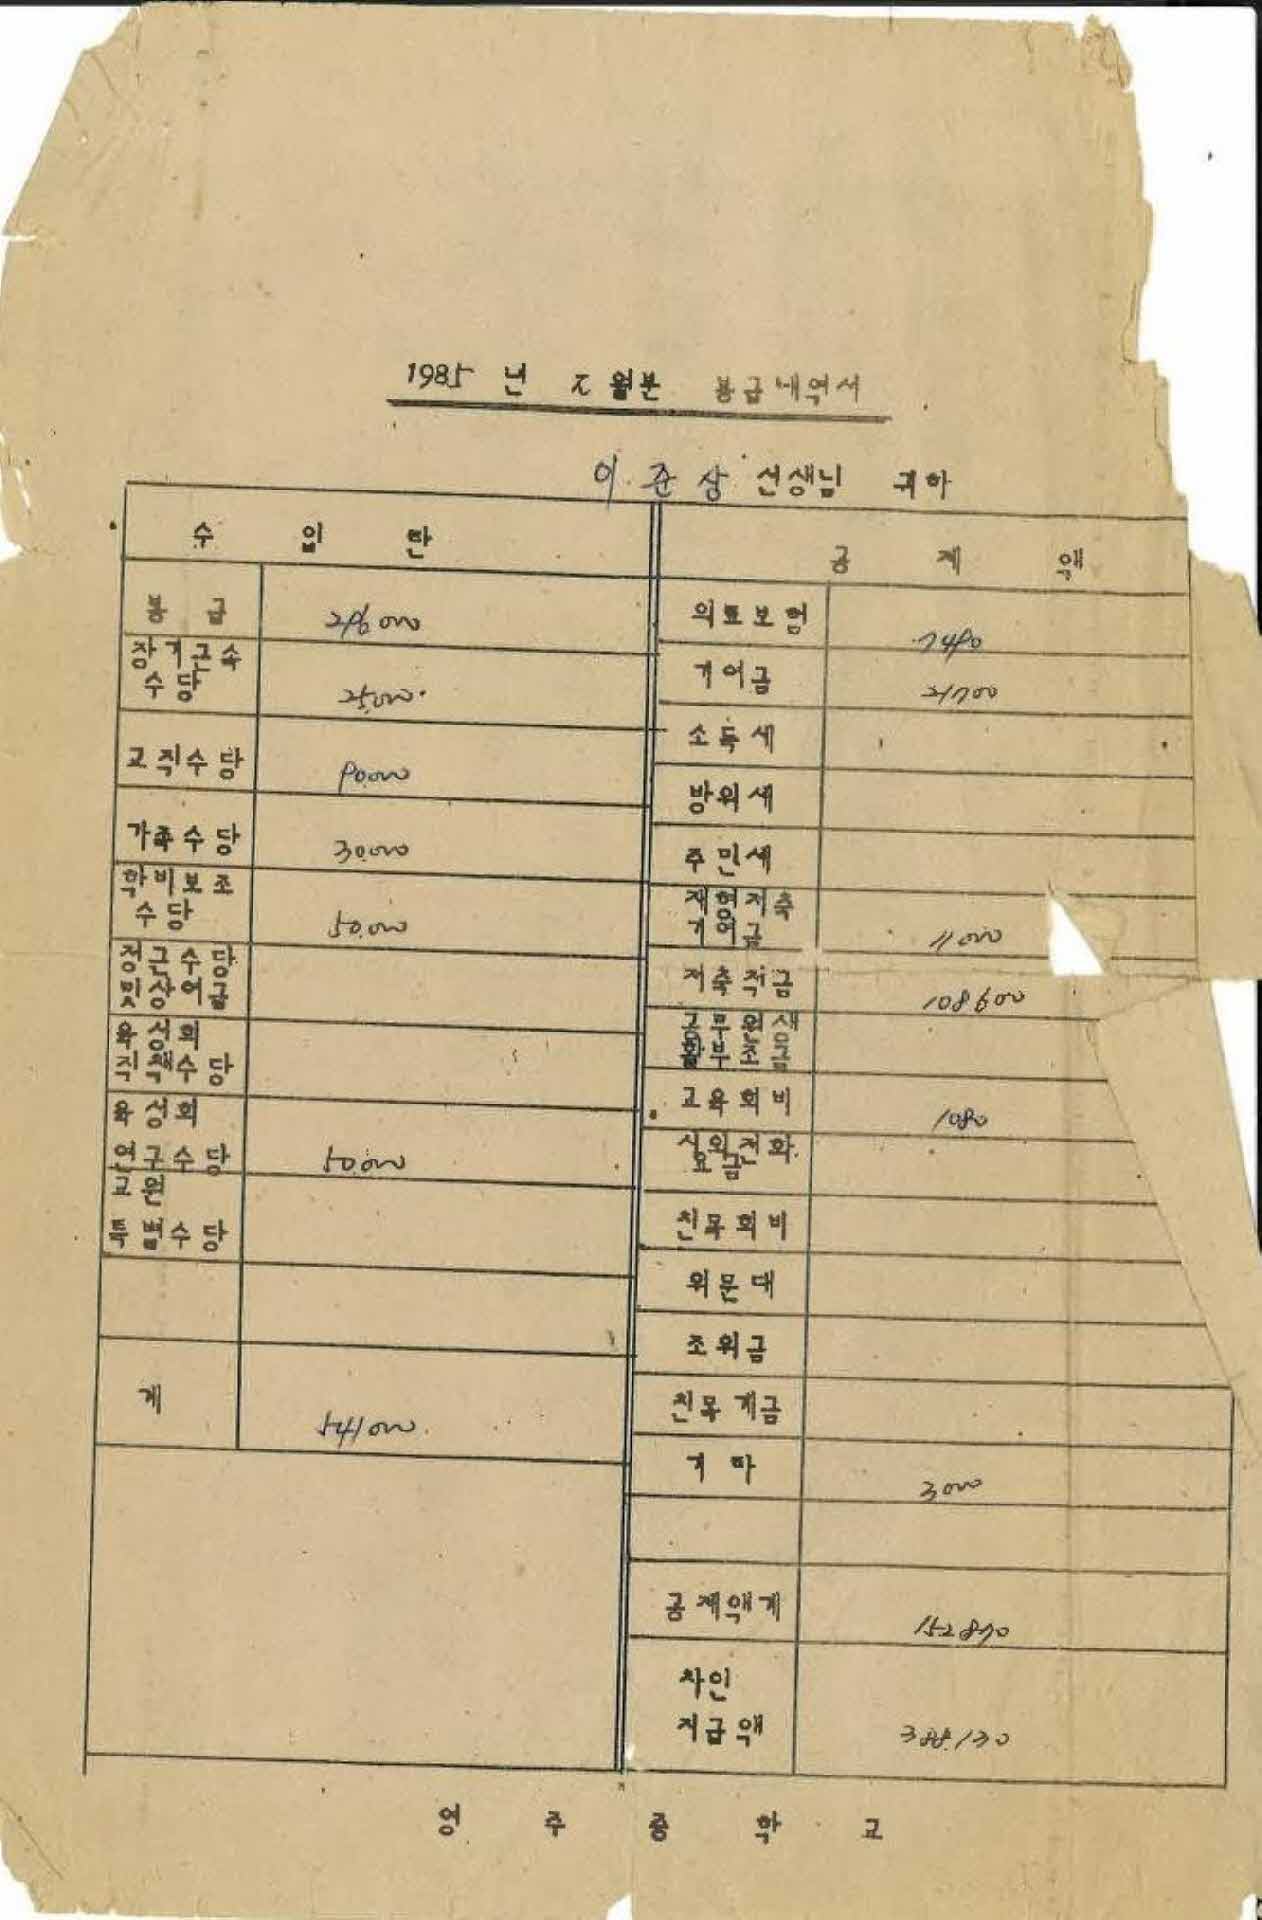 1985 년 월분 봉급내역서
이준상 선생님 귀하
수 입 란
봉 급 296000
장기근속
수당 25,000
교직수당 90000
가족수당 30000
학비보조
수당 50,000
정근수당
및상여금
육성회
직책수당
육성회
연구수당 50,000
교원
특별수당
계 541000
공 제 액
의료보험 7490
기여금 21700
소득세
방위세
주민세
재형저축
기여금 11000
저축적금 108600
공무원생
활부조금
교육회비 1080
시외전화
요금
친목회비
위문대
조위금
친목계금
기타 3000
공제액계 152870
차인
지급액 388,130
영 주 중 학 교